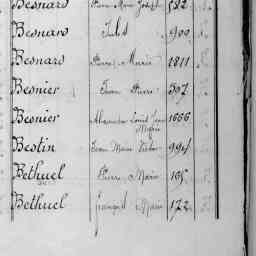 Besnard Pierre Marie Joseph 582
Besnard Jules 900
Besnard Pierre Marie 1811
Besnier Jean Pierre 507
Besnier Alexandre Louis Jean 1666
Marie
Bestin Jean Marie Victor 994
Bethuel Pierre Marie
Bethuel François Marie 172